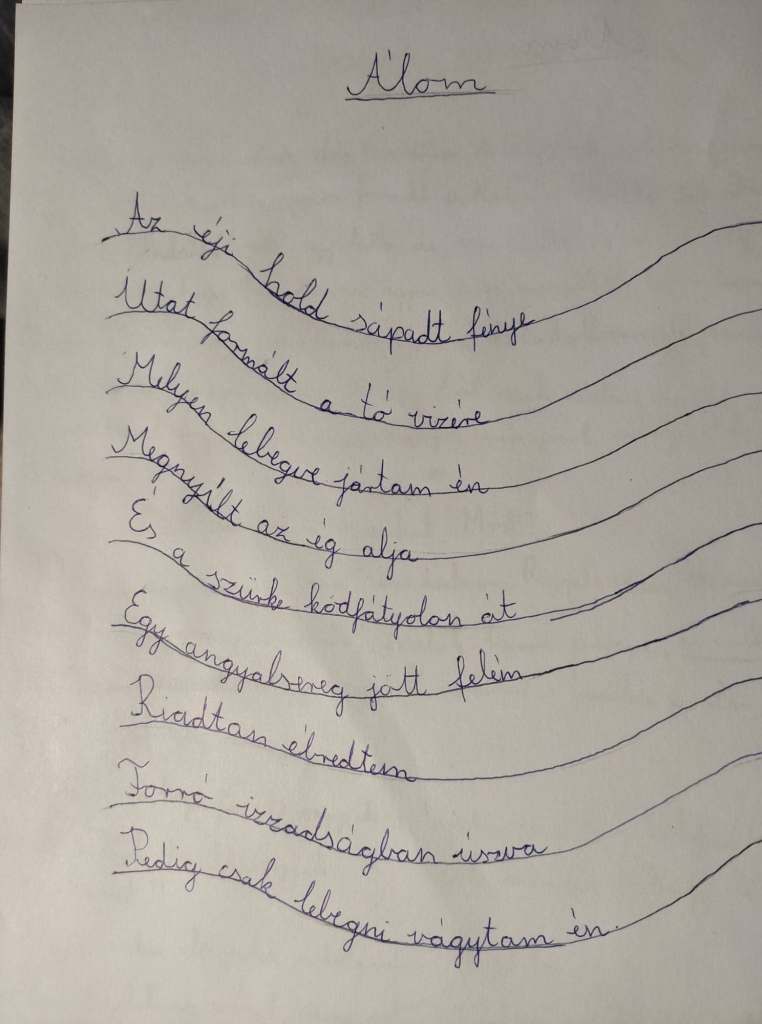 Álom
Az éji hold sápadt fénye
Utat formált a tó vizére
Melyen lebegve jártam én
Megnyílt az ég alja
És a szürke ködfátyolon át
Egy angyalsereg jött felém
Riadtan ébredtem
Forró izzadságban úszva
Pedig csak lebegni vágytam én.